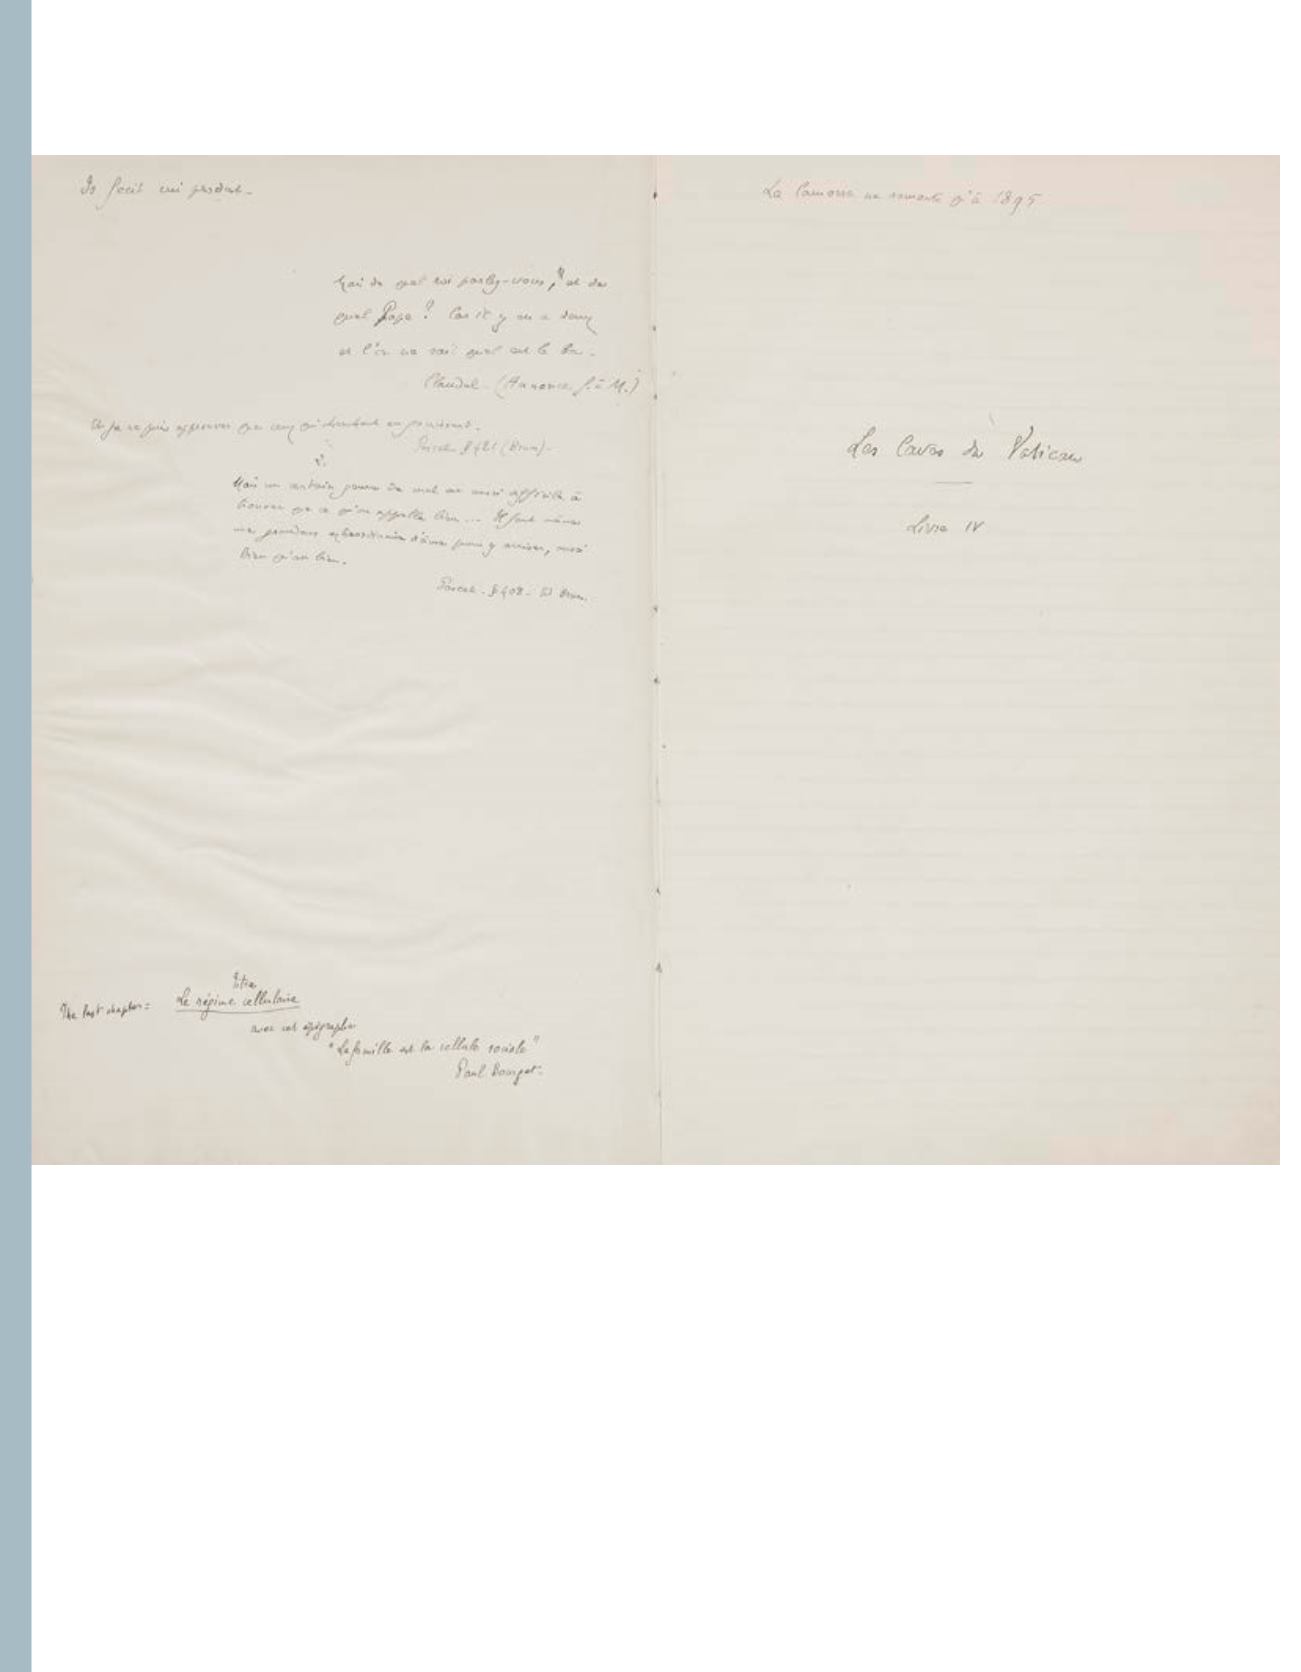 Is fecit cui prodest -
Mais de quel roi parlez-vous, et de
quel Pape ? Car il y en a deux
et l'on ne sait quel est le bon.
Claudel - (Annonce f. à M.)
Et je ne puis approuver que ceux qui cherchent en gémissant.
Pascal § 421 (Brun) -
2.
Mais un certain genre de mal est aussi difficile à
trouver que ce qu'on appelle bien ... Il faut même
une grandeur extraordinaire d'âme pour y arriver, aussi
bien qu'au bien.
Pascal - § 408 - Ed Brun.
Titre
The last chapter = Le régime cellulaire
avec cet épigraphe
"La famille est la cellule sociale"
Paul Bourget -
La Camorra ne remonte qu'à 1895
Les Caves du Vatican
Livre IV